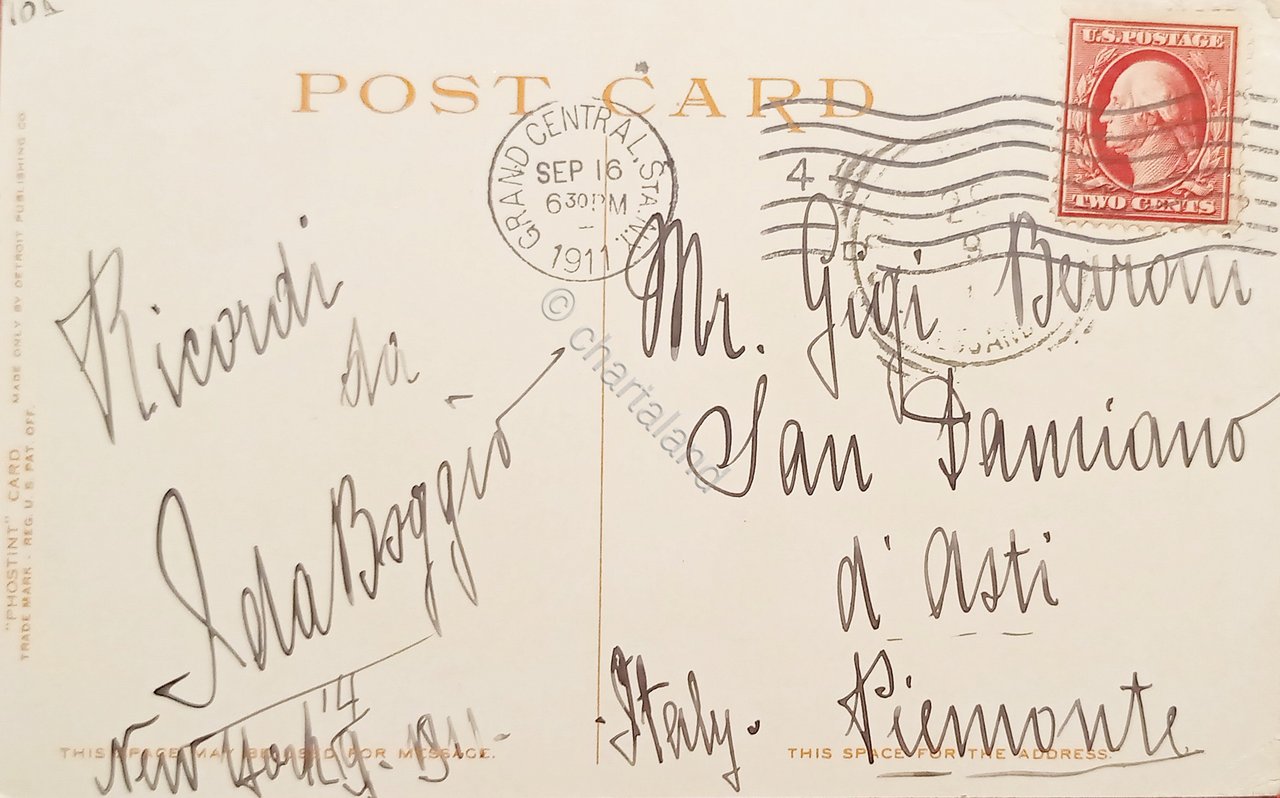 POST CARD
U.S. POSTAGE
TWO CENTS
GRAND CENTRAL, STA. N.Y.
SEP 16
630PM
1911
4
D
Ricordi
da
Ida Boggio
New York
Mr. Gigi Berroni
San Damiano
d' Asti
Italy. Piemonte
THIS SPACE MAY BE USED FOR MESSAGE.
THIS SPACE FOR THE ADDRESS.
"PHOSTINT" CARD MADE ONLY BY DETROIT PUBLISHING CO.
TRADE MARK - REG. U.S. PAT. OFF.
© chartaland